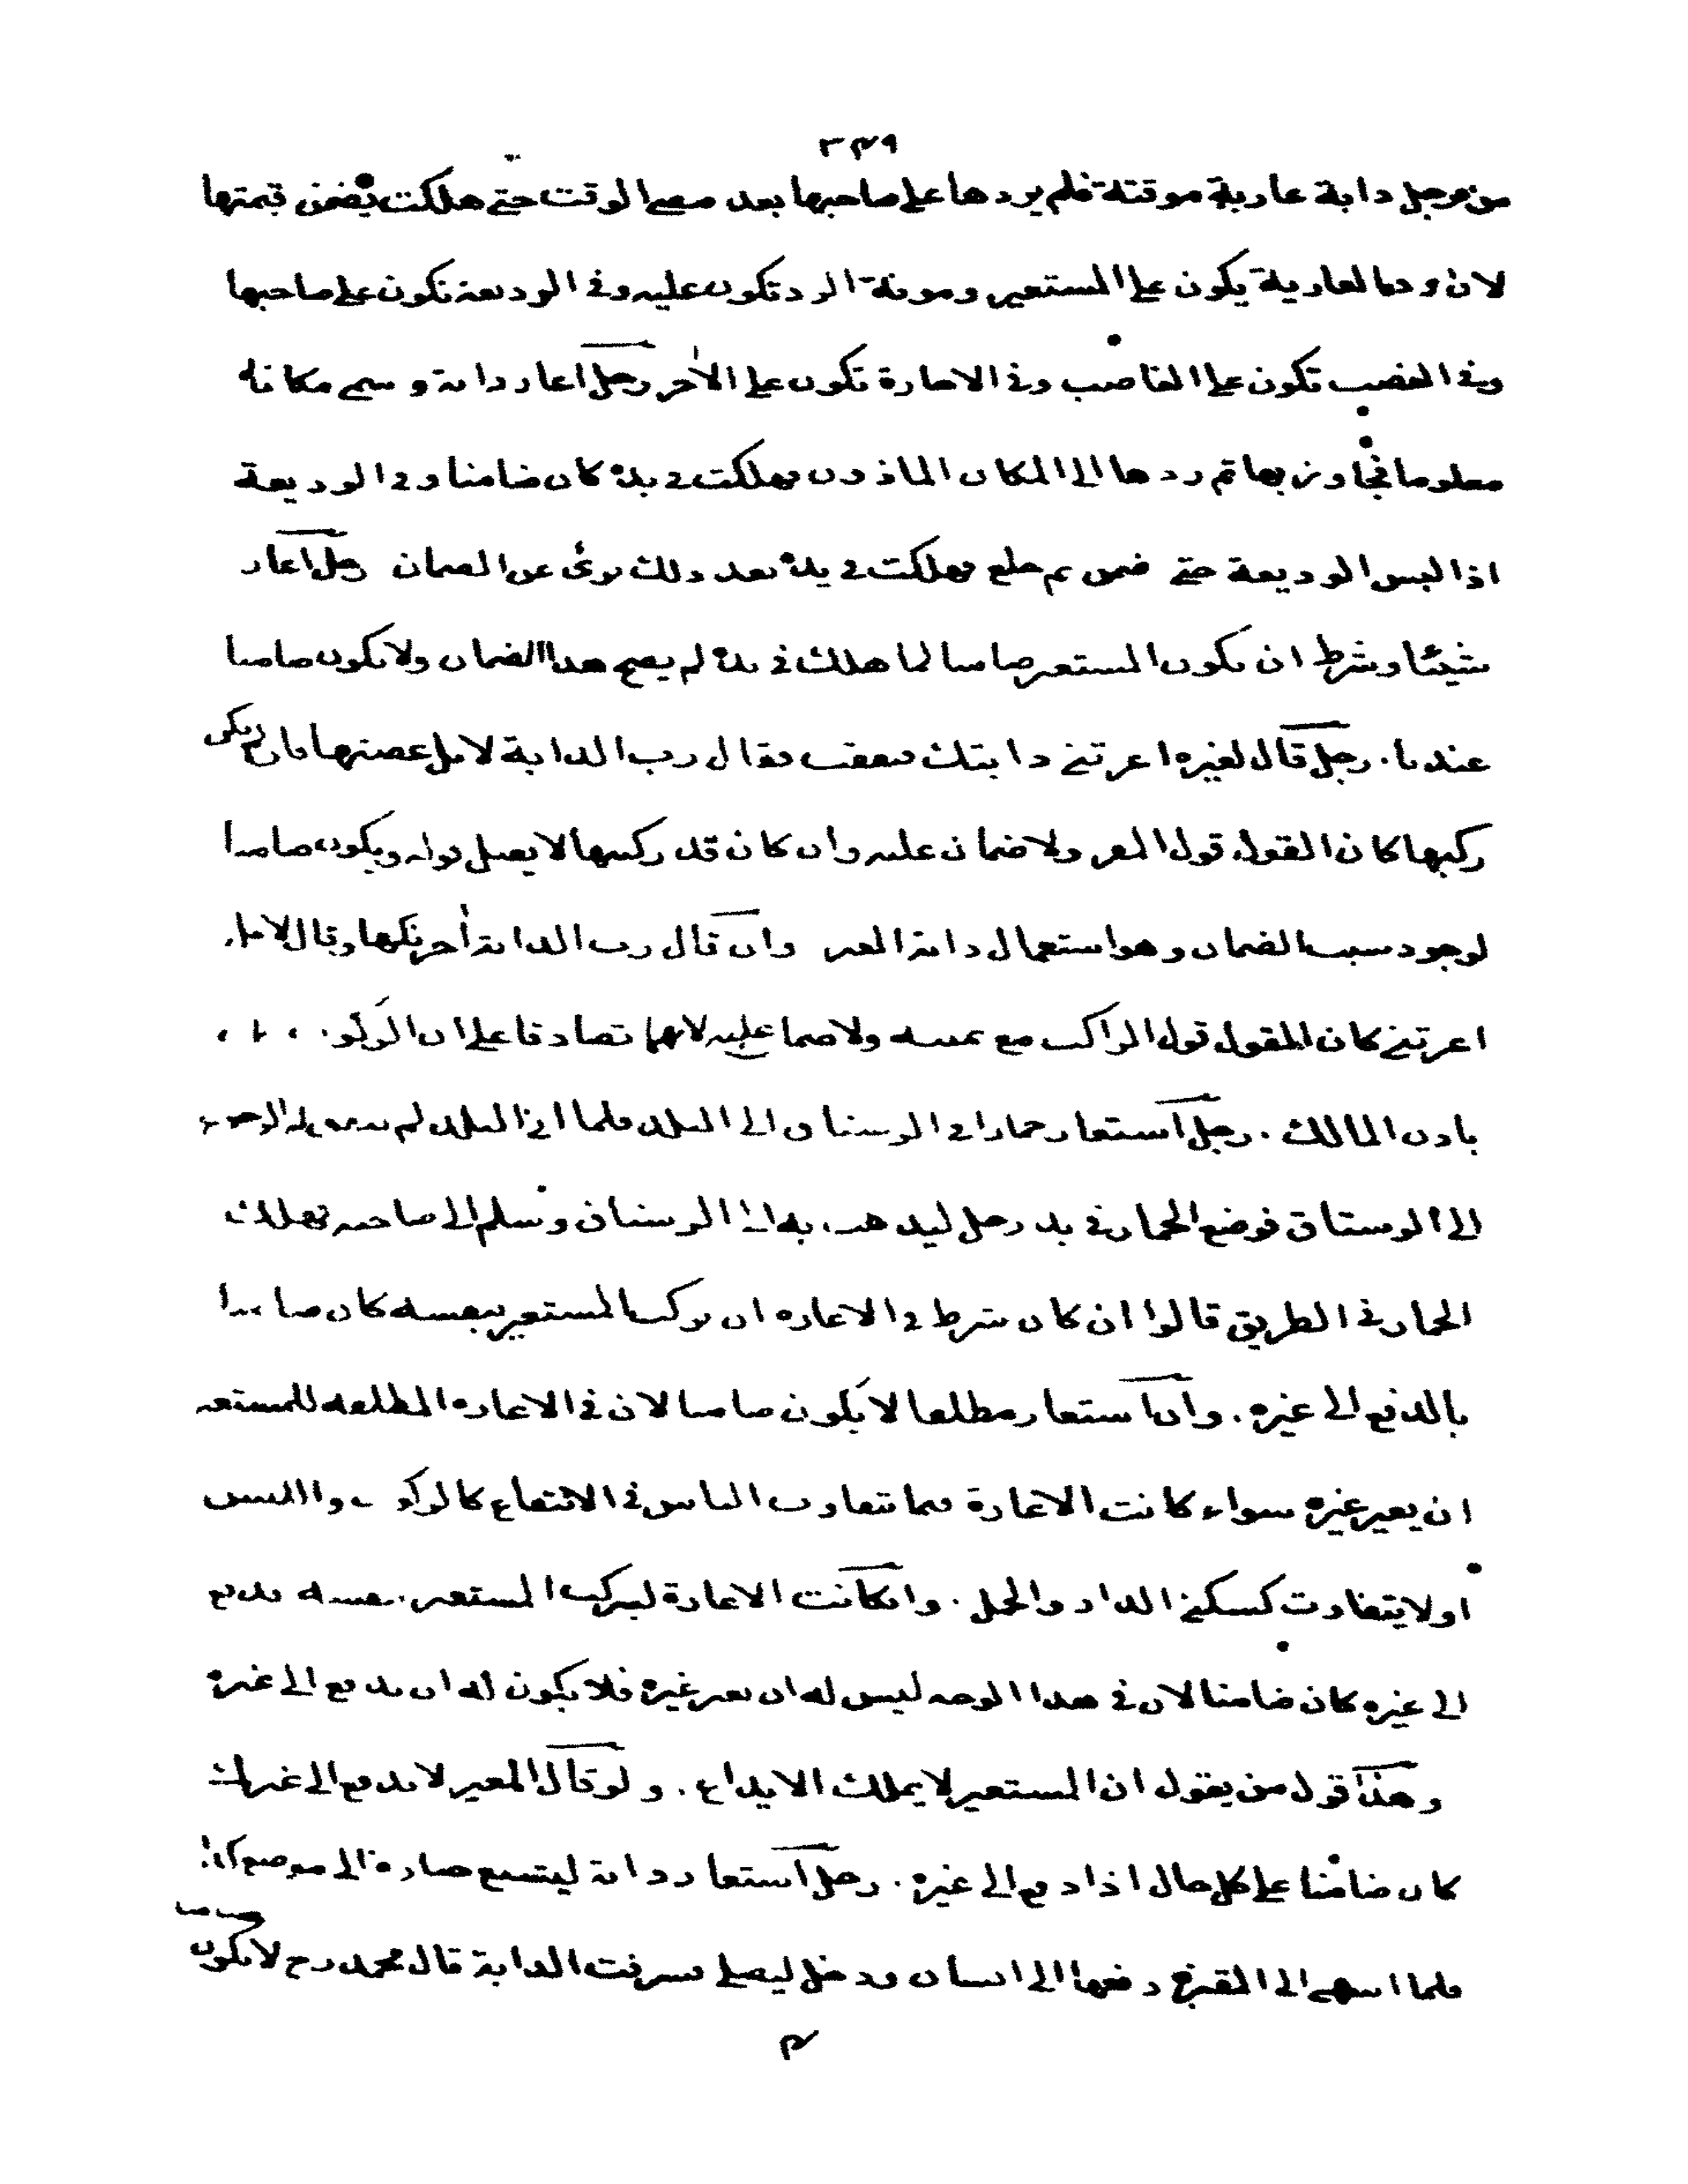 ٣٤٩
من رجل دابة عارية موقتة فلم يردها على صاحبها بعد مضى الوقت حتى هلكت يضمن قيمتها
لان رد العارية يكون على المستعير ومونة الرد تكون عليه وفى الوديعة تكون على صاحبها
وفى الغصب تكون على الغاصب وفى الاجارة تكون على الآجر رجل اعار دابة وسمى مكانا
معلوما فجاوز بها ثم ردها الى المكان الماذون فهلكت فى يده كان ضامنا وفى الوديعة
اذا لبس الوديعة حتى ضمن ثم خلع فهلكت فى يده بعد ذلك برئ عن الضمان رجل اعار
شيئا وشرط ان يكون المستعير ضامنا لما هلك فى يده لم يصح هذا الضمان ولا يكون ضامنا
عندنا . رجل قال لغيره اعرتنى دابتك فنفقت فقال رب الدابة لا بل غصبتها فان لم يكن
ركبها كان القول قول المعير ولا ضمان عليه وان كان قد ركبها لا يقبل قوله ويكون ضامنا
لوجود سبب الضمان وهو استعمال دابة الغير وان قال رب الدابة آجرتكها وقال لا بل
اعرتنى كان القول قول الراكب مع يمينه ولا ضمان عليه لانهما تصادقا على ان الركوب
باذن المالك . رجل استعار حمارا فى الرستاق الى البلد فلما اتى البلد لم الرجوع
الى الرستاق فوضع الحمار فى يد رجل ليذهب به الى الرستاق وسلم الى صاحبه فهلك
الحمار فى الطريق قالوا ان كان شرط فى الاعارة ان يركب المستعير بنفسه كان ضامنا
بالدفع الى غيره . وان استعار مطلقا لا يكون ضامنا لان فى الاعارة المطلقة للمستعير
ان يعير غيره سواء كانت الاعارة فيما تتفاوت الناس فى الانتفاع كالركوب واللبس
اولا يتفاوت كسكنى الدار والحمل . وان كانت الاعارة ليركب المستعير بنفسه فدفع
الى غيره كان ضامنا لان فى هذا الوجه ليس له ان يعير غيره فلا يكون له ان يدفع الى غيره
وهذا قول من يقول ان المستعير لا يملك الايداع . ولو قال المعير لا تدفع الى غيرك
كان ضامنا على كل حال اذا دفع الى غيره . رجل استعار دابة ليشيع جنازة الى موضع كذا
فلما انتهى الى المقبرة دفعها الى انسان ودخل ليصلى فسرقت الدابة قال محمد رح لا يكون ضامنا